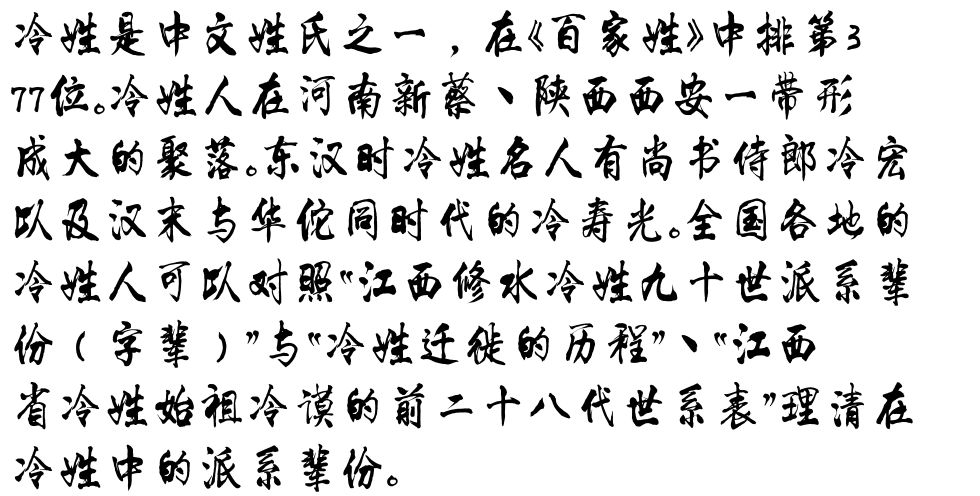 冷姓是中文姓氏之一，在《百家姓》中排第3
77位。冷姓人在河南新蔡、陕西西安一带形
成大的聚落。东汉时冷姓名人有尚书侍郎冷宏
以及汉末与华佗同时代的冷寿光。全国各地的
冷姓人可以对照“江西修水冷姓九十世派系辈
份（字辈）”与“冷姓迁徙的历程”、“江西
省冷姓始祖冷谟的前二十八代世系表”理清在
冷姓中的派系辈份。